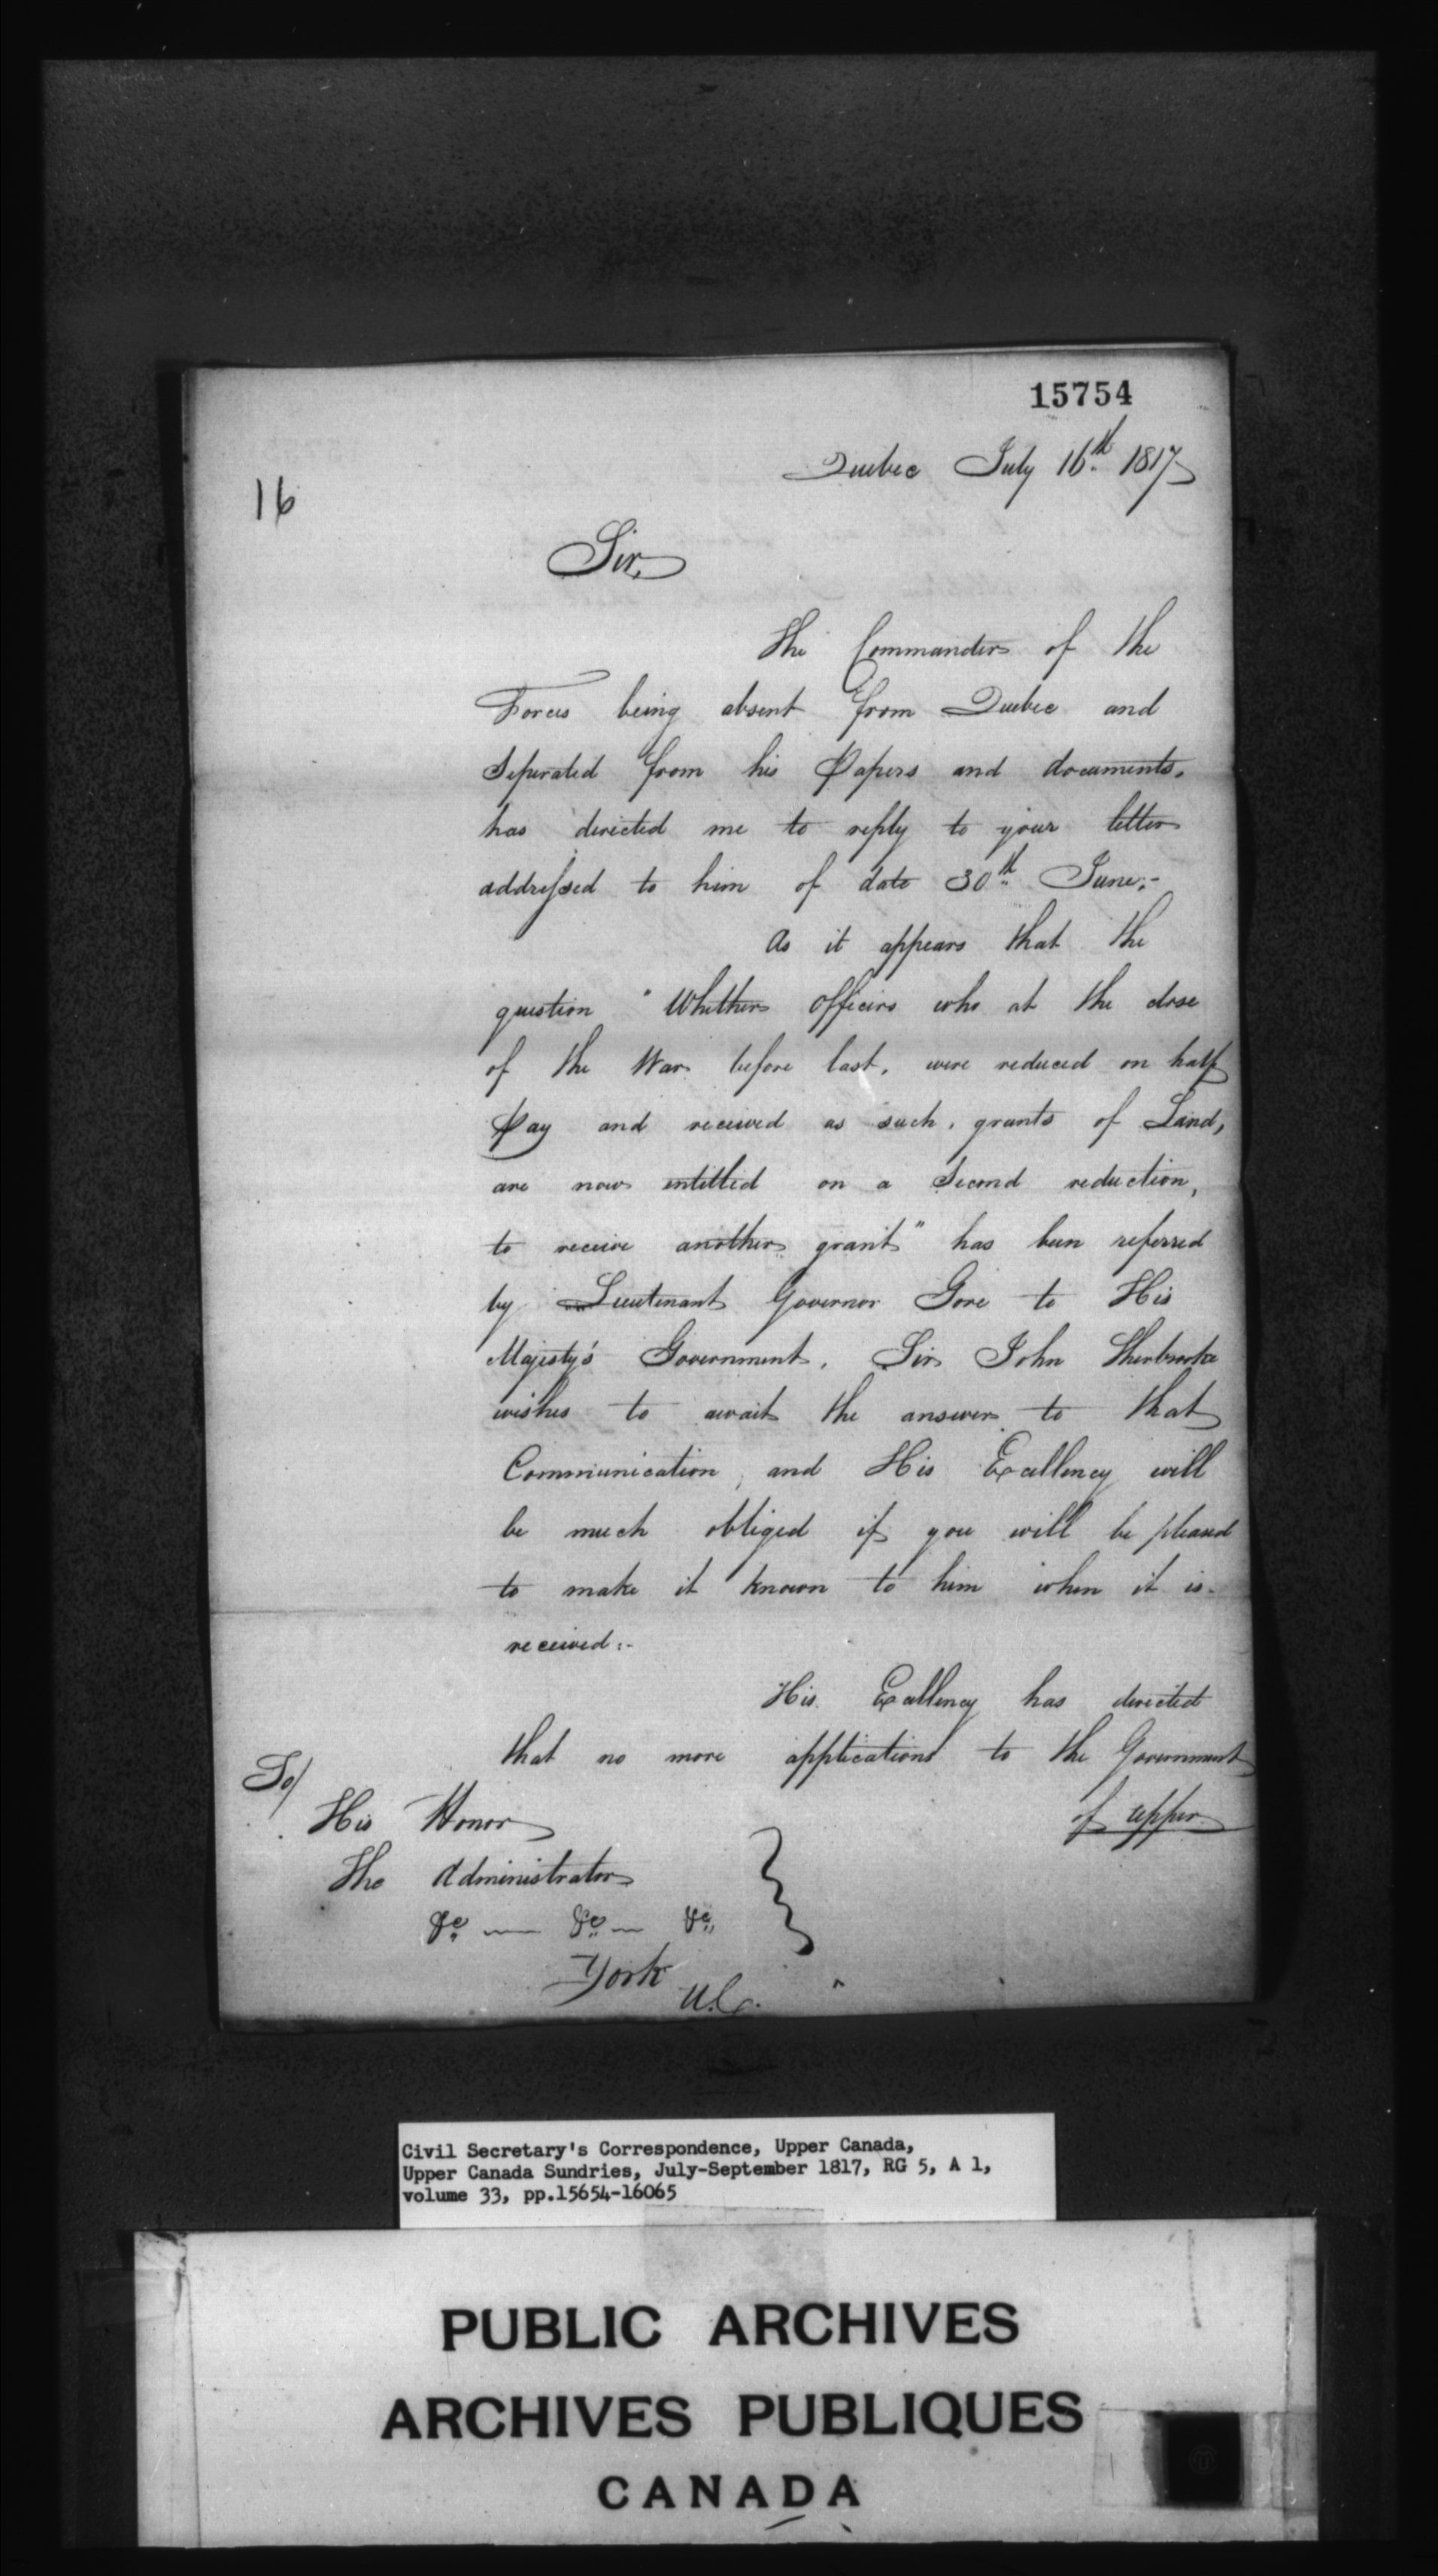 15754
Quebec July 16th 1817
16
Sir,
The Commander of the
Forces being absent from Quebec and
Seperated from his Papers and documents,
has directed me to reply to your letter
addressed to him of date 30th June:-
As it appears that the
question "Whether Officers who at the close
of the War before last, were reduced on half
Pay and received as such, grants of Land,
are now entitled on a Second reduction,
to receive another grant" has been referred
by Lieutenant Governor Gore to His
Majesty's Government, Sir John Sherbrooke
wishes to await the answer to that
Communication, and His Excellency will
be much obliged if you will be pleased
to make it known to him when it is
received:-
His Excellency has directed
that no more applications to the Government
of Upper
To/
His Honor
The Administrator
&c — &c — &c
York
U.C.
Civil Secretary's Correspondence, Upper Canada,
Upper Canada Sundries, July-September 1817, RG 5, A 1,
volume 33, pp.15654-16065
PUBLIC ARCHIVES
ARCHIVES PUBLIQUES
CANADA